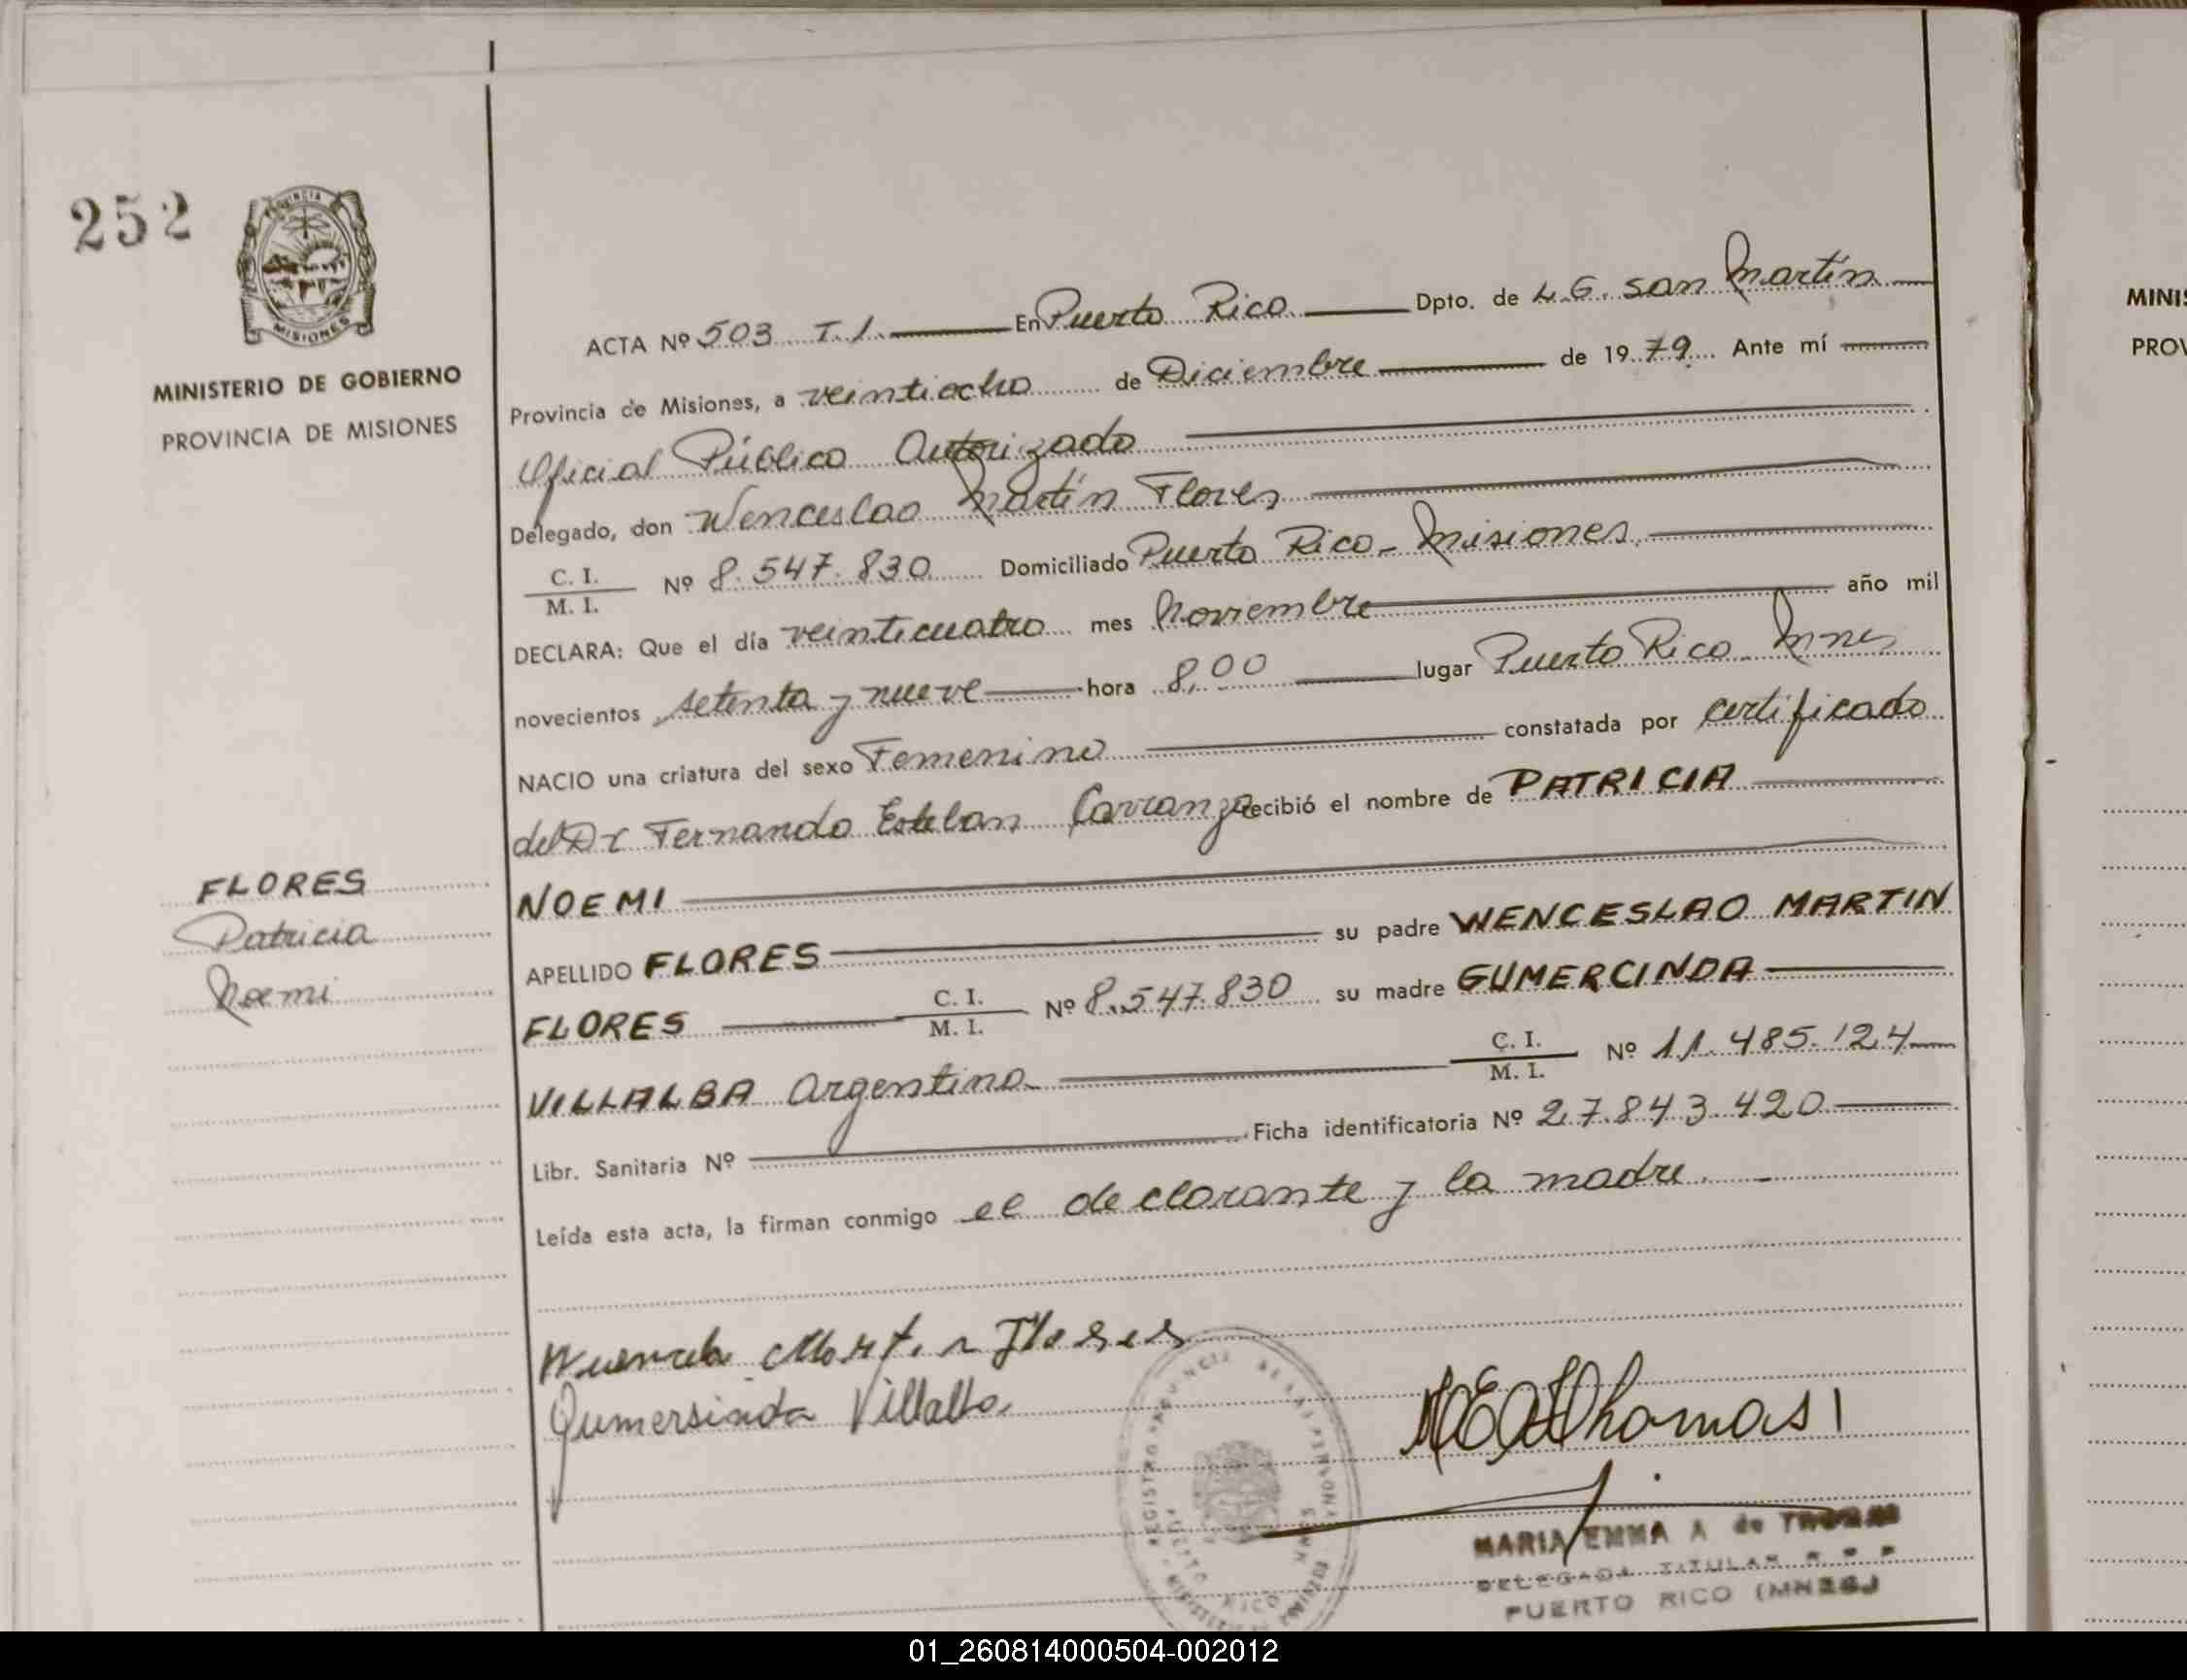 252
PROVINCIA
MISIONES
MINISTERIO DE GOBIERNO
PROVINCIA DE MISIONES
ACTA Nº 503 T.I. En Puerto Rico Dpto. de L.G. San Martín
Provincia de Misiones, a veintiocho de Diciembre de 1979. Ante mí
Oficial Público Autorizado
Delegado, don Wenceslao Martín Flores
C. I.
M. I. Nº 8.547.830 Domiciliado Puerto Rico - Misiones.
DECLARA: Que el día veinticuatro mes Noviembre año mil
novecientos setenta y nueve hora 8,00 lugar Puerto Rico - Mnes
NACIO una criatura del sexo Femenino constatada por certificado
del Dr Fernando Esteban Carranza recibió el nombre de PATRICIA
NOEMI
APELLIDO FLORES su padre WENCESLAO MARTIN
FLORES C. I.
M. I. Nº 8.547.830 su madre GUMERCINDA
VILLALBA Argentina C. I.
M. I. Nº 11.485.124
Libr. Sanitaria Nº Ficha identificatoria Nº 27.843.420
Leída esta acta, la firman conmigo el declarante y la madre.
FLORES
Patricia
Noemi
Martin Flores
Gumersinda Villalba
Thomas
MARIA EMMA A de
DELEGADA TITULAR
PUERTO RICO (MNES)
MINIS
PROV
01_260814000504-002012